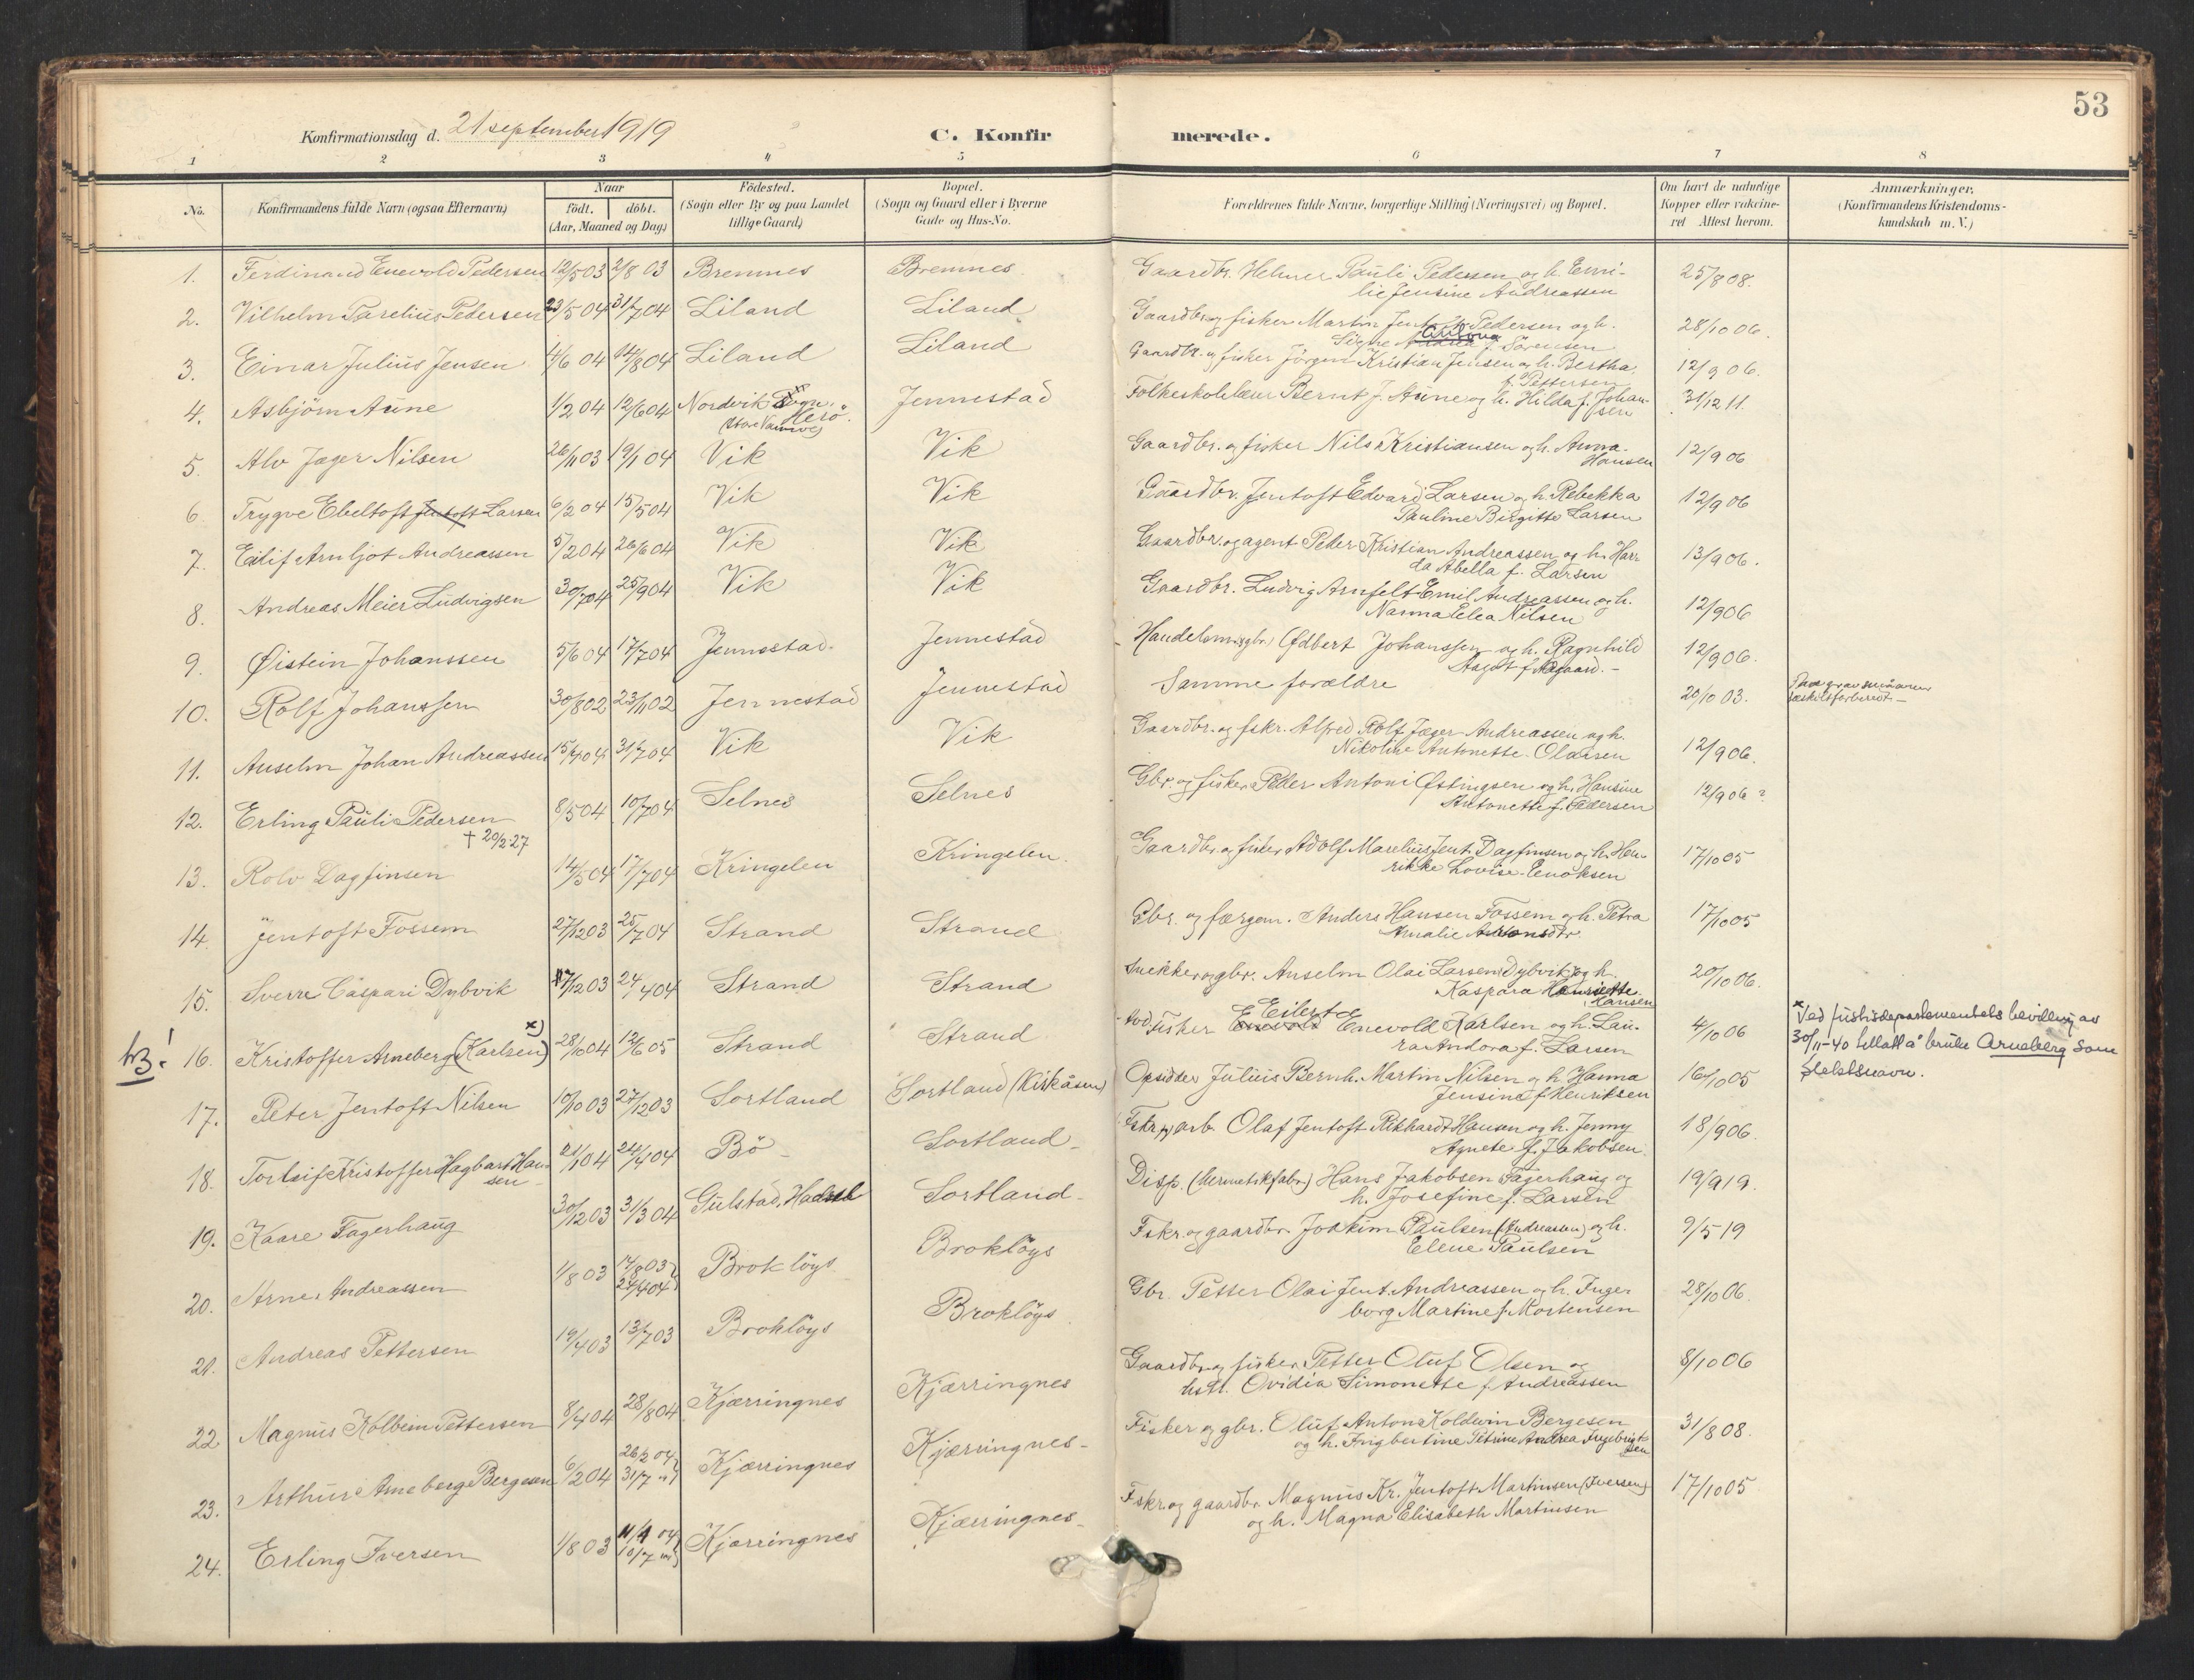 53
Konfirmationsdag d. 21 september 1919
C. Konfirmerede.
1 2 3 4 5 6 7 8
No.
Konfirmandens fulde Navn (ogsaa Efternavn)
Naar
födt. döbt.
(Aar, Maaned og Dag)
Födested.
(Sogn eller By og paa Landet
tillige Gaard)
Bopæl.
(Sogn og Gaard eller i Byerne
Gade og Hus-No.
Forældrenes fulde Navne, borgerlige Stilling (Næringsvei) og Bopæl.
Om havt de naturlige
Kopper eller vakcine-
ret Attest herom.
Anmærkninger,
(Konfirmandens Kristendoms-
kundskab m. V.)
1. Ferdinand Enevold Pedersen 12/5 03 2/8 03 Bremnes Bremnes Gaardbr. Helmer Pauli Pedersen og h. Emi-
lie Jensine Andreassen 25/8 08.
2. Vilhelm Parelius Pedersen 23/5 04 31/7 04 Liland Liland Gaardbr. og fisker Martin Jentoft Pedersen og h.
Signe f. Sörensen 28/10 06.
3. Einar Julius Jensen 4/6 04 14/8 04 Liland Liland Gaardbr. og fisker Jörgen Kristian Jensen og h. Bertha
f. Pettersen 12/9 06.
4. Asbjörn Aune 1/2 04 12/6 04 Nordvik Sogn, Herö. Jennestad Folkeskolelærer Bernt J. Aune og h. Hilda f. Johan-
sen 31/12 11.
5. Alv Jæger Nilsen 26/11 03 19/1 04 Vik Vik Gaardbr. og fisker Nils Kristiansen og h. Anna
Hansen 12/9 06
6 Trygve Ebeltoft Jentoft Larsen 6/2 04 15/5 04 Vik Vik Gaardbr. Jentoft Edvard Larsen og h. Rebekka
Pauline Birgitte Larsen 12/9 06
7. Eilif Arnljot Andreassen 5/2 04 26/6 04 Vik Vik Gaardbr. og agent Peder Kristian Andreassen og h. Harr
da Abella f. Larsen 13/9 06.
8. Andreas Meier Ludvigsen 30/7 04 25/9 04 Vik Vik Gaardbr. Ludvig Arnfelt Emil Andreassen og h.
Nanna Elea Nilsen 12/9 06
9. Øistein Johanssen 5/6 04 17/7 04 Jennestad. Jennestad Handelsm. og gbr. Edbert Johanssen og h. Ragnhild
Aagot f. Aagaard. 12/9 06.
10. Rolf Johanssen 30/8 02 23/11 02 Jennestad Jennestad Samme forældre 20/10 03.
11. Anselm Johan Andreassen 15/4 04 31/7 04 Vik Vik Gaardbr. og fskr. Alfred Rolf Jæger Andreassen og h.
Nikoline Antonette Olaisen 12/9 06.
12. Erling Pauli Pedersen 8/5 04 10/7 04 Selnes Selnes Gbr. og fisker Peder Antoni Østingsen og h. Hansine
Antonette f. Pedersen 12/9 06?
† 20/2 27
13. Rolv Dagfinsen 14/5 04 17/7 04 Kringelen Kringelen. Gaardbr. og fisker Adolf Marelius Jent. Dagfinsen og h. Hen-
rikke Lovise Enoksen 17/10 05
14. Jentoft Fossem 27/12 03 25/7 04 Strand Strand Gbr. og færgem. Anders Hansen Fossem og h. Petra
Amalie Antonsdtr 17/10 05
15. Sverre Caspari Dybvik 17/12 03 24/4 04 Strand Strand Snekker og gbr. Anselm Olai Larsen Dybvik og h.
Kaspara Henriette Hansen 20/10 06.
NB.! 16. Kristoffer Arneberg (Karlsen) x) 28/10 04 12/6 05 Strand Strand Fisker Eilert Enevold Karlsen og h. Lau-
ra Andora f. Larsen 4/10 06
x Ved justisdepartementets bevilling av
30/11-40 tillatt å bruke Arneberg som
slektsnavn.
17. Peter Jentoft Nilsen 10/10 03 27/12 03 Sortland Sortland (Kirkåsen) Opsidder Julius Bernh. Martin Nilsen og h. Hanna
Jensine f. Henriksen 16/10 05
18. Torleif Kristoffer Hagbart Han-
sen 21/1 04 24/4 04 Bö Sortland Fskr. og arb. Olaf Jentoft Rikhardt Hansen og h. Jenny
Agnete f. Jakobsen. 18/9 06.
19. Kaare Fagerhaug 30/12 03 31/3 04 Gulstad, Hadsel Sortland Disp. (Hermetikfabr.) Hans Jakobsen Fagerhaug og
h. Josefine f. Larsen 19/9 19.
20. Arne Andreassen 1/8 03 14/8 03 24/4 04 Brokløys Brokløys Fskr. og gaardbr. Joakim Paulsen (Andreassen) og h.
Elene Paulsen 9/5 19
21. Andreas Pettersen 19/4 03 13/7 03 Brokløys Brokløys Gbr. Petter Olai Jent. Andreassen og h. Inger
borg Martine f. Mortensen 28/10 06.
22 Magnus Kolbein Pettersen 8/4 04 28/8 04 Kjærringnes Kjærringnes Gaardbr. og fisker Petter Oluf Olsen og
hstr. Ovidia Simonette f. Andreassen 8/10 06
23. Arthur Arneberg Bergesen 6/2 04 26/2 04 31/7 Kjærringnes Kjærringnes Fisker og gbr. Oluf Anton Koldevin Bergesen
og h. Ingbertine Petrine Andrea Ingebrigt
sen 31/8 08.
24. Erling Iversen 1/8 03 11/4 04 10/7 Kjærringnes Kjærringnes Fskr. og gaardbr. Magnus Kr. Jentoft Martinsen (Iversen)
og h. Magna Elisabeth Martinsen 17/10 05